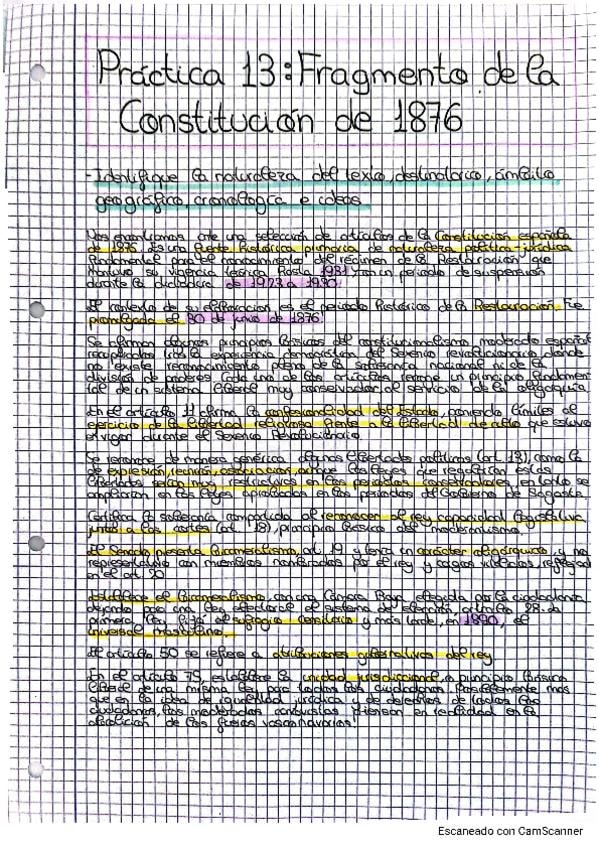 Práctica 13: Fragmento de la
Constitución de 1876
- Identifique la naturaleza del texto, destinatario, ámbito
geográfico, cronológica e
Nos encontramos ante una selección de artículos de la Constitución española
de 1876. Es una fuente histórica primaria de naturaleza político-jurídica
fundamental para el conocimiento del régimen de la Restauración que
mantuvo su vigencia teórica hasta 1931 con un periodo de suspensión
durante la dictadura de 1923 a 1930.
El contexto de su elaboración es el periodo histórico de la Restauración. Fue
promulgada el 30 de junio de 1876.
Se afirman algunos principios básicos del constitucionalismo moderado español
recuperados tras la experiencia democrática del Sexenio revolucionario donde
no existe reconocimiento pleno de la soberanía nacional ni de la
división de poderes. Cada uno de los artículos un principio fundamen
tal de un sistema liberal muy conservador al servicio de la oligarquía
En el artículo 11 afirma la confesionalidad del Estado, poniendo límites al
ejercicio de la libertad religiosa frente a la libertad de culto que estuvo
en vigor durante el Sexenio Revolucionario.
Se de manera genérica algunas libertades políticas (art. 13), como la
de expresión, reunión, asociación, aunque las leyes que regularían estas
libertades serían muy restrictivas en los periodos conservadores, en tanto se
ampliarían en las leyes aprobadas en los periodos de Gobierno de Sagasta.
Certifica la soberanía compartida al reconocer al rey capacidad legislativa
junto a las cortes (art. 18), principio básico del moderantismo.
El Senado presenta Bicameralismo, art. 19 y tenía un carácter oligárquico, y no
representativo con miembros nombrados por el rey y cargos vitalicios, reflejado
en el art. 20
Establece el Bicameralismo, con una Cámara Baja, elegida por la ciudadanía
dejando para una ley electoral el sistema de elección, artículo 28. La
primera ley fijó el sufragio censitario y más tarde, en 1890, el
universal masculino.
El artículo 50 se refiere a atribuciones gubernativas del rey
En el artículo 75, establece la unidad jurisdiccional, o principio básico
liberal de una misma ley para todos los ciudadanos. Posiblemente más
que en la idea de igualdad jurídica y de derechos de todos los
ciudadanos, los moderados canovistas piensan en realidad en la
abolición de los fueros vasconavarros.
Escaneado con CamScanner